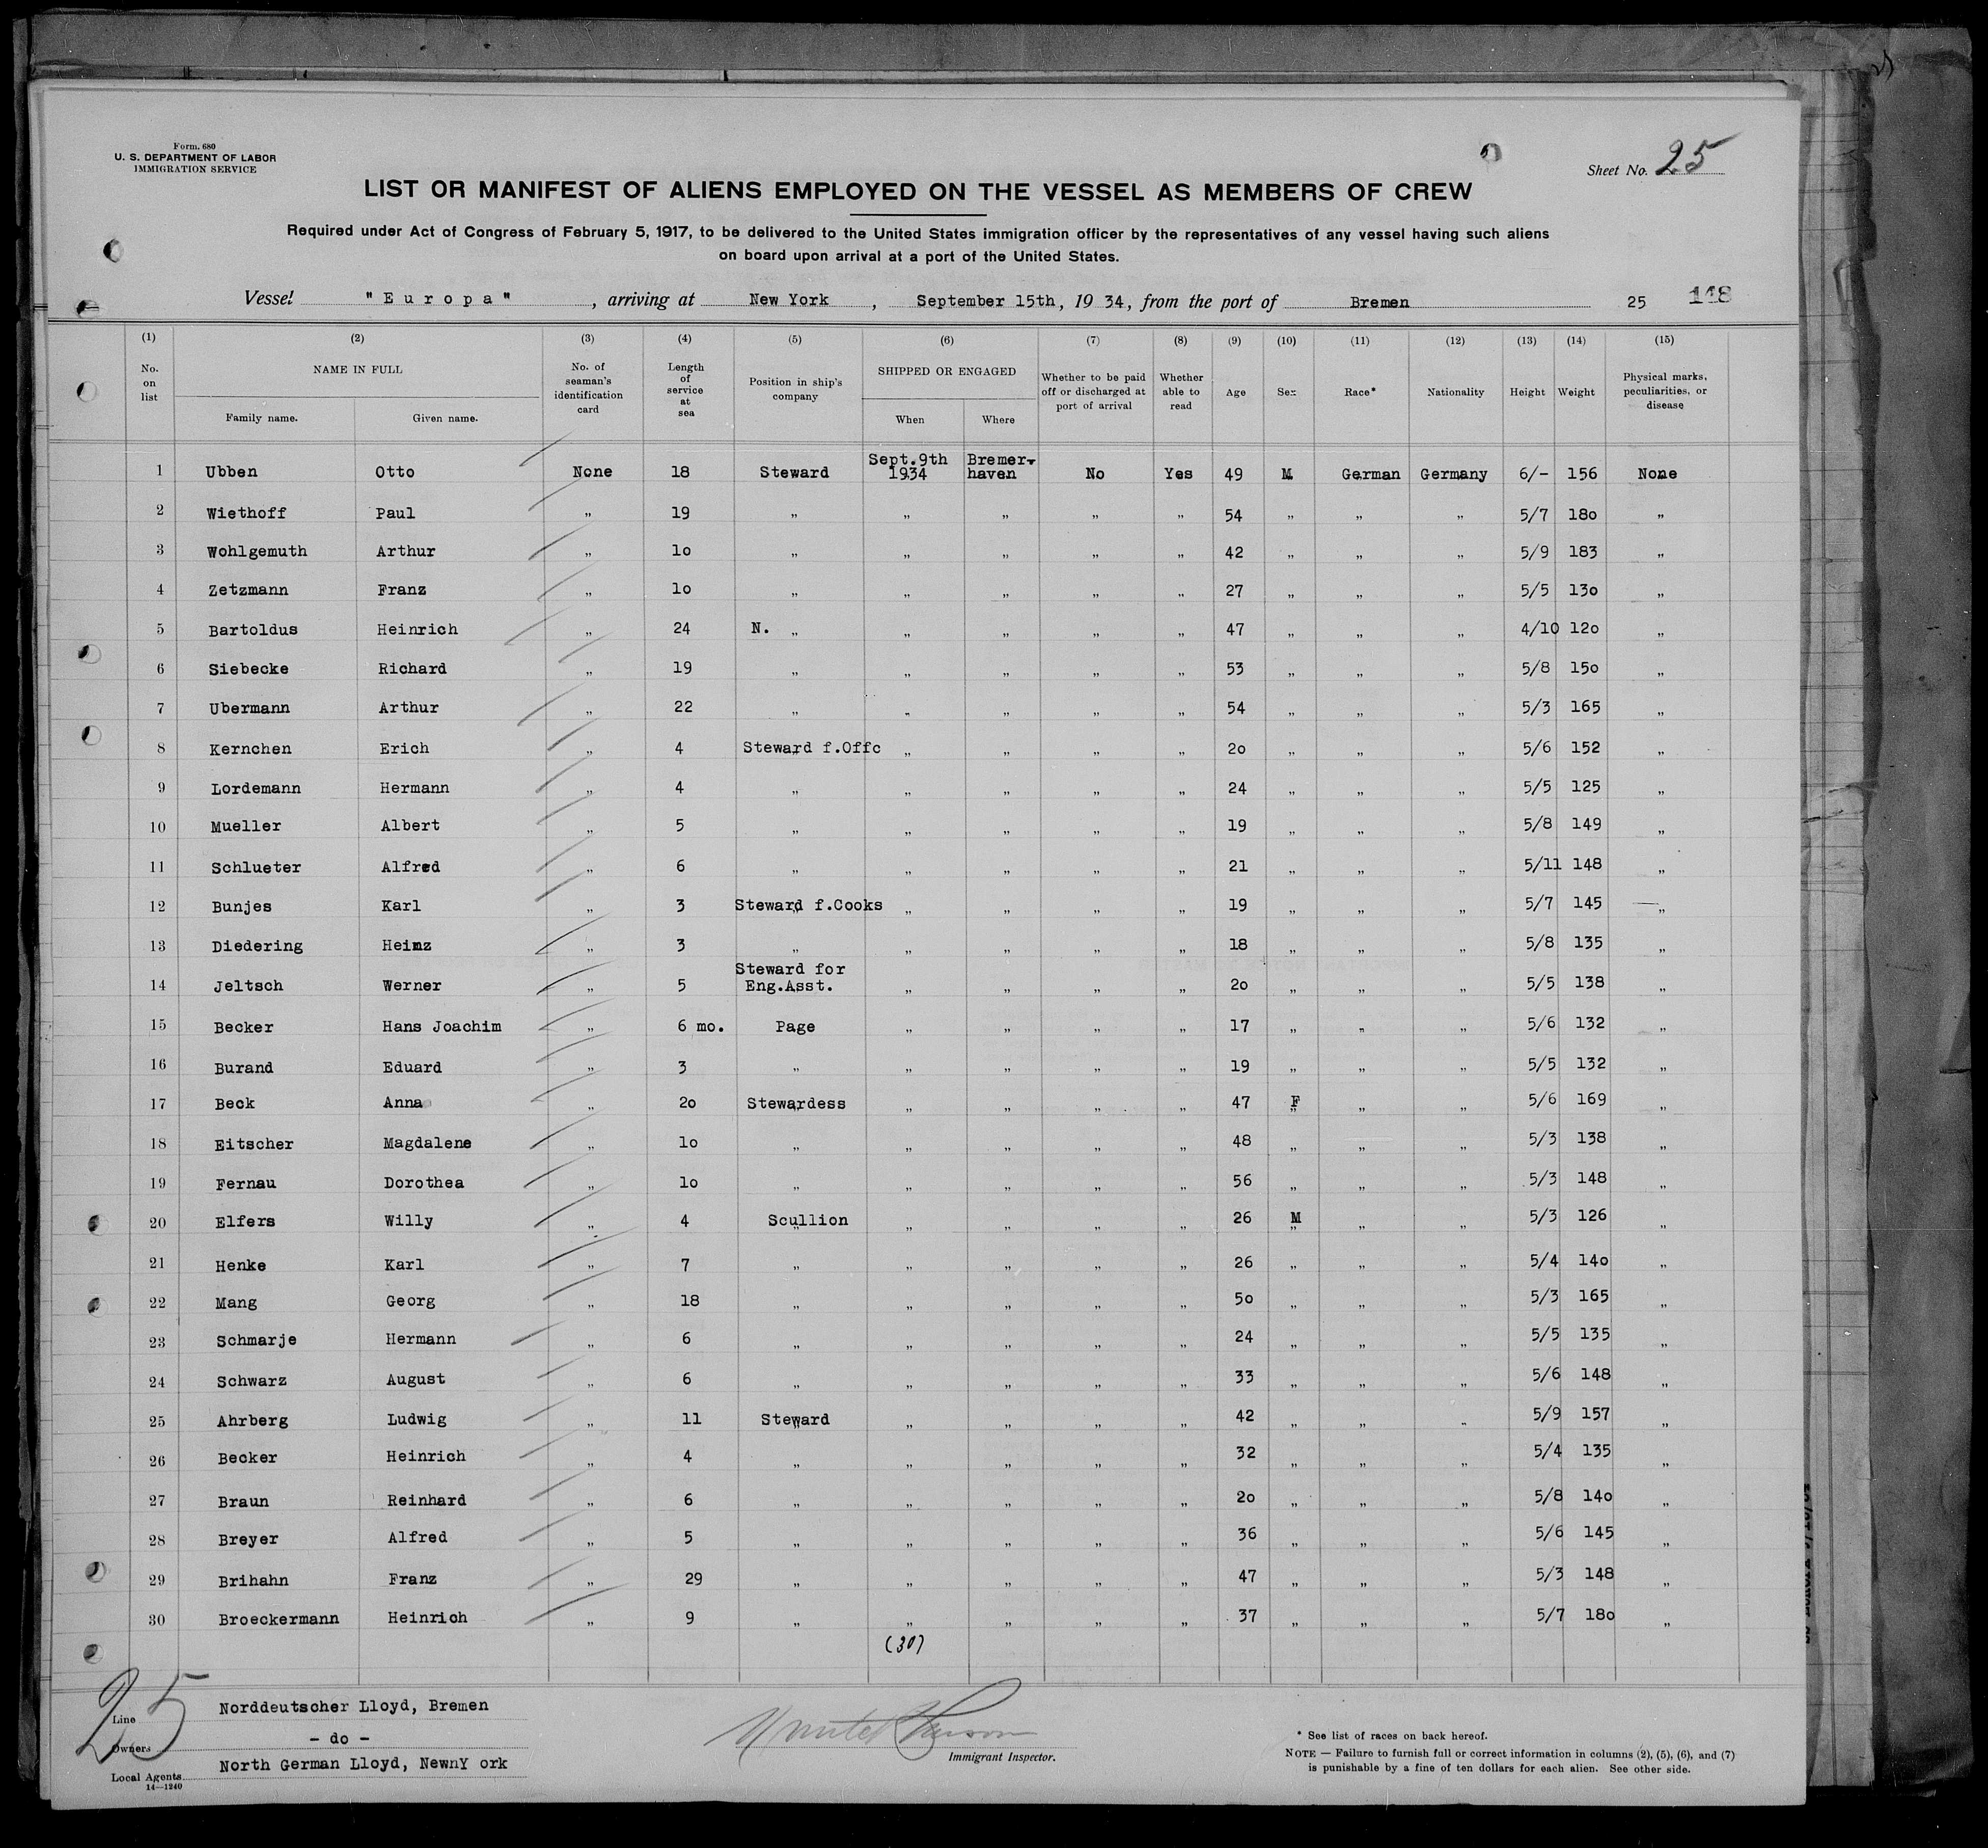 Form. 680
U. S. DEPARTMENT OF LABOR
IMMIGRATION SERVICE
Sheet No. 25
LIST OR MANIFEST OF ALIENS EMPLOYED ON THE VESSEL AS MEMBERS OF CREW
Required under Act of Congress of February 5, 1917, to be delivered to the United States immigration officer by the representatives of any vessel having such aliens
on board upon arrival at a port of the United States.
Vessel "Europa", arriving at New York, September 15th, 1934, from the port of Bremen 25 148
(1) (2) (3) (4) (5) (6) (7) (8) (9) (10) (11) (12) (13) (14) (15)
No. on list NAME IN FULL Family name. Given name. No. of seaman's identification card Length of service at sea Position in ship's company SHIPPED OR ENGAGED When Where Whether to be paid off or discharged at port of arrival Whether able to read Age Sex Race* Nationality Height Weight Physical marks, peculiarities, or disease
1 Ubben Otto None 18 Steward Sept.9th 1934 Bremer-haven No Yes 49 M German Germany 6/- 156 None
2 Wiethoff Paul „ 19 „ „ „ „ „ 54 „ „ „ 5/7 18o „
3 Wohlgemuth Arthur „ 1o „ „ „ „ „ 42 „ „ „ 5/9 183 „
4 Zetzmann Franz „ 1o „ „ „ „ „ 27 „ „ „ 5/5 13o „
5 Bartoldus Heinrich „ 24 N. „ „ „ „ „ 47 „ „ „ 4/10 12o „
6 Siebecke Richard „ 19 „ „ „ „ „ 53 „ „ „ 5/8 15o „
7 Ubermann Arthur „ 22 „ „ „ „ „ 54 „ „ „ 5/3 165 „
8 Kernchen Erich „ 4 Steward f.Offc „ „ „ „ 2o „ „ „ 5/6 152 „
9 Lordemann Hermann „ 4 „ „ „ „ „ 24 „ „ „ 5/5 125 „
10 Mueller Albert „ 5 „ „ „ „ „ 19 „ „ „ 5/8 149 „
11 Schlueter Alfred „ 6 „ „ „ „ „ 21 „ „ „ 5/11 148 „
12 Bunjes Karl „ 3 Steward f.Cooks „ „ „ „ 19 „ „ „ 5/7 145 „
13 Diedering Heinz „ 3 „ „ „ „ „ 18 „ „ „ 5/8 135 „
14 Jeltsch Werner „ 5 Steward for Eng.Asst. „ „ „ „ 2o „ „ „ 5/5 138 „
15 Becker Hans Joachim „ 6 mo. Page „ „ „ „ 17 „ „ „ 5/6 132 „
16 Burand Eduard „ 3 „ „ „ „ „ 19 „ „ „ 5/5 132 „
17 Beck Anna „ 2o Stewardess „ „ „ „ 47 F „ „ 5/6 169 „
18 Eitscher Magdalene „ 1o „ „ „ „ „ 48 „ „ „ 5/3 138 „
19 Fernau Dorothea „ 1o „ „ „ „ „ 56 „ „ „ 5/3 148 „
20 Elfers Willy „ 4 Scullion „ „ „ „ 26 M „ „ 5/3 126 „
21 Henke Karl „ 7 „ „ „ „ „ 26 „ „ „ 5/4 14o „
22 Mang Georg „ 18 „ „ „ „ „ 5o „ „ „ 5/3 165 „
23 Schmarje Hermann „ 6 „ „ „ „ „ 24 „ „ „ 5/5 135 „
24 Schwarz August „ 6 „ „ „ „ „ 33 „ „ „ 5/6 148 „
25 Ahrberg Ludwig „ 11 Steward „ „ „ „ 42 „ „ „ 5/9 157 „
26 Becker Heinrich „ 4 „ „ „ „ „ 32 „ „ „ 5/4 135 „
27 Braun Reinhard „ 6 „ „ „ „ „ 2o „ „ „ 5/8 14o „
28 Breyer Alfred „ 5 „ „ „ „ „ 36 „ „ „ 5/6 145 „
29 Brihahn Franz „ 29 „ „ „ „ „ 47 „ „ „ 5/3 148 „
30 Broeckermann Heinrich „ 9 „ „ „ „ „ 37 „ „ „ 5/7 18o „
(30)
25
Line Norddeutscher Lloyd, Bremen
Owners - do -
Local Agents North German Lloyd, NewnY ork
14—1240
Immigrant Inspector.
* See list of races on back hereof.
NOTE — Failure to furnish full or correct information in columns (2), (5), (6), and (7)
is punishable by a fine of ten dollars for each alien. See other side.